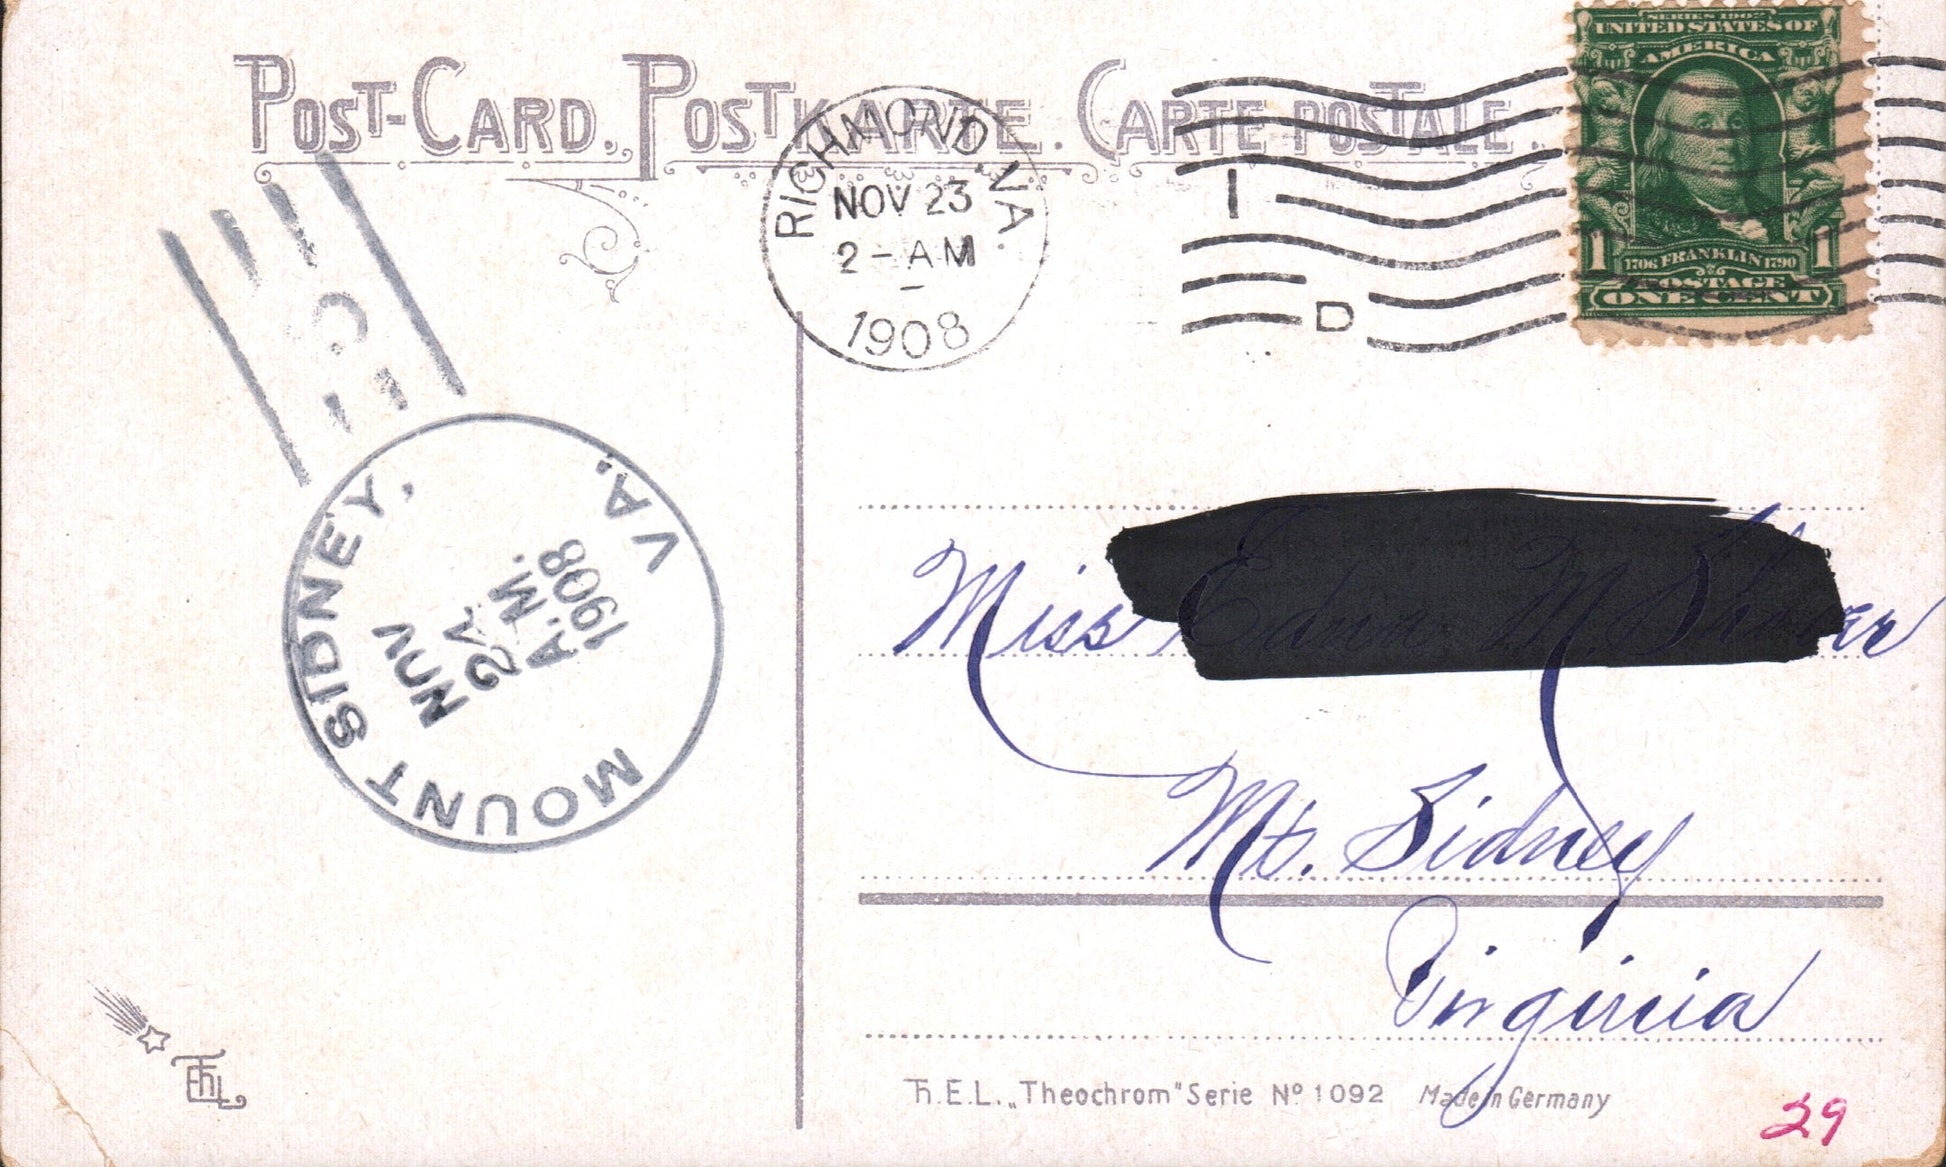 POST-CARD. POSTKARTE. CARTE POSTALE.
RICHMOND, VA.
NOV 23
2-AM
1908
1
D
SERIES 1902
UNITED STATES OF
AMERICA
1 1706 FRANKLIN 1790 1
POSTAGE
ONE CENT
MOUNT SIDNEY, VA.
NOV
A.M.
1908
Miss
Mt. Sidney
Virginia
T.H.E.L. „Theochrom" Serie Nº 1092 Made in Germany
29